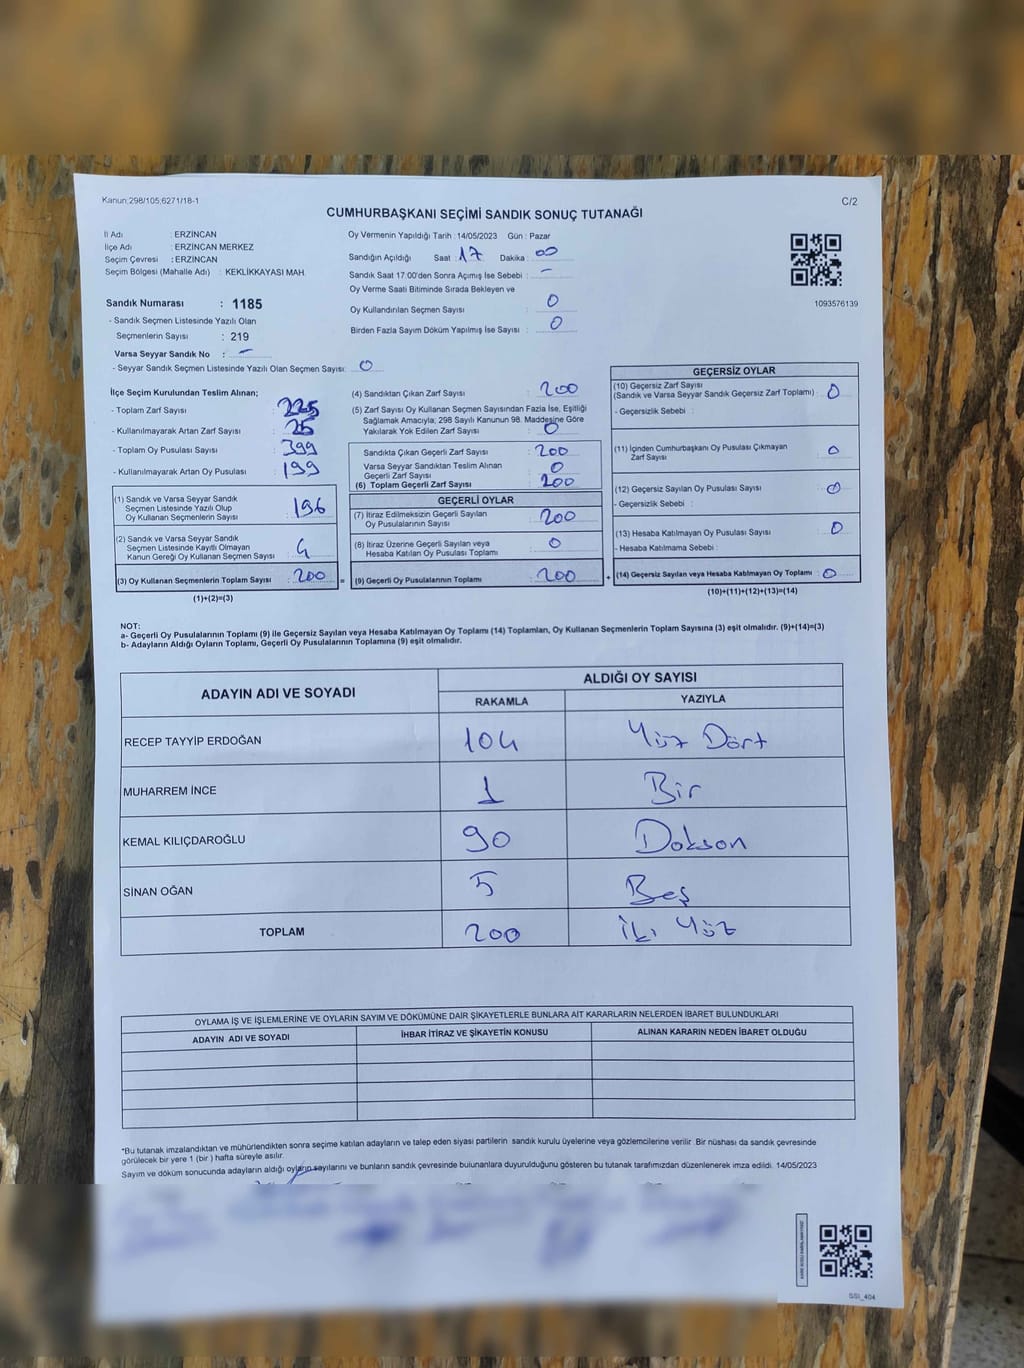 Kanun;298/105;6271/18-1
C/2
CUMHURBAŞKANI SEÇİMİ SANDIK SONUÇ TUTANAĞI
İl Adı : ERZİNCAN
İlçe Adı : ERZİNCAN MERKEZ
Seçim Çevresi : ERZİNCAN
Seçim Bölgesi (Mahalle Adı) : KEKLİKKAYASI MAH.
Sandık Numarası : 1185
- Sandık Seçmen Listesinde Yazılı Olan
Seçmenlerin Sayısı : 219
Varsa Seyyar Sandık No : -
- Seyyar Sandık Seçmen Listesinde Yazılı Olan Seçmen Sayısı: 0
Oy Vermenin Yapıldığı Tarih : 14/05/2023 Gün : Pazar
Sandığın Açıldığı Saat : 17 Dakika : 00
Sandık Saat 17:00'den Sonra Açımış İse Sebebi : -
Oy Verme Saati Bitiminde Sırada Bekleyen ve
Oy Kullandırılan Seçmen Sayısı : 0
Birden Fazla Sayım Döküm Yapılmış İse Sayısı : 0
1093576139
İlçe Seçim Kurulundan Teslim Alınan;
- Toplam Zarf Sayısı : 225
- Kullanılmayarak Artan Zarf Sayısı : 25
- Toplam Oy Pusulası Sayısı : 399
- Kullanılmayarak Artan Oy Pusulası : 199
(1) Sandık ve Varsa Seyyar Sandık
Seçmen Listesinde Yazılı Olup
Oy Kullanan Seçmenlerin Sayısı : 196
(2) Sandık ve Varsa Seyyar Sandık
Seçmen Listesinde Kayıtlı Olmayan
Kanun Gereği Oy Kullanan Seçmen Sayısı : 4
(3) Oy Kullanan Seçmenlerin Toplam Sayısı : 200 =
(1)+(2)=(3)
(4) Sandıktan Çıkan Zarf Sayısı : 200
(5) Zarf Sayısı Oy Kullanan Seçmen Sayısından Fazla İse, Eşitliği
Sağlamak Amacıyla; 298 Sayılı Kanunun 98. Maddesine Göre
Yakılarak Yok Edilen Zarf Sayısı : 0
Sandıkta Çıkan Geçerli Zarf Sayısı : 200
Varsa Seyyar Sandıktan Teslim Alınan
Geçerli Zarf Sayısı : 0
(6) Toplam Geçerli Zarf Sayısı : 200
GEÇERLİ OYLAR
(7) İtiraz Edilmeksizin Geçerli Sayılan
Oy Pusulalarının Sayısı : 200
(8) İtiraz Üzerine Geçerli Sayılan veya
Hesaba Katılan Oy Pusulası Toplamı : 0
(9) Geçerli Oy Pusulalarının Toplamı : 200 +
GEÇERSİZ OYLAR
(10) Geçersiz Zarf Sayısı
(Sandık ve Varsa Seyyar Sandık Geçersiz Zarf Toplamı) : 0
- Geçersizlik Sebebi :
(11) İçinden Cumhurbaşkanı Oy Pusulası Çıkmayan
Zarf Sayısı : 0
(12) Geçersiz Sayılan Oy Pusulası Sayısı : 0
- Geçersizlik Sebebi :
(13) Hesaba Katılmayan Oy Pusulası Sayısı : 0
- Hesaba Katılmama Sebebi :
(14) Geçersiz Sayılan veya Hesaba Katılmayan Oy Toplamı : 0
(10)+(11)+(12)+(13)=(14)
NOT:
a- Geçerli Oy Pusulalarının Toplamı (9) ile Geçersiz Sayılan veya Hesaba Katılmayan Oy Toplamı (14) Toplamları, Oy Kullanan Seçmenlerin Toplam Sayısına (3) eşit olmalıdır. (9)+(14)=(3)
b- Adayların Aldığı Oyların Toplamı, Geçerli Oy Pusulalarının Toplamına (9) eşit olmalıdır.
ADAYIN ADI VE SOYADI
ALDIĞI OY SAYISI
RAKAMLA YAZIYLA
RECEP TAYYİP ERDOĞAN 104 Yüz Dört
MUHARREM İNCE 1 Bir
KEMAL KILIÇDAROĞLU 90 Doksan
SİNAN OĞAN 5 Beş
TOPLAM 200 İki Yüz
OYLAMA İŞ VE İŞLEMLERİNE VE OYLARIN SAYIM VE DÖKÜMÜNE DAİR ŞİKAYETLERLE BUNLARA AİT KARARLARIN NELERDEN İBARET BULUNDUKLARI
ADAYIN ADI VE SOYADI İHBAR İTİRAZ VE ŞİKAYETİN KONUSU ALINAN KARARIN NEDEN İBARET OLDUĞU
*Bu tutanak imzalandıktan ve mühürlendikten sonra seçime katılan adayların ve talep eden siyasi partilerin sandık kurulu üyelerine veya gözlemcilerine verilir. Bir nüshası da sandık çevresinde
görülecek bir yere 1 (bir ) hafta süreyle asılır.
Sayım ve döküm sonucunda adayların aldığı oyların sayılarını ve bunların sandık çevresinde bulunanlara duyurulduğunu gösteren bu tutanak tarafımızdan düzenlenerek imza edildi. 14/05/2023